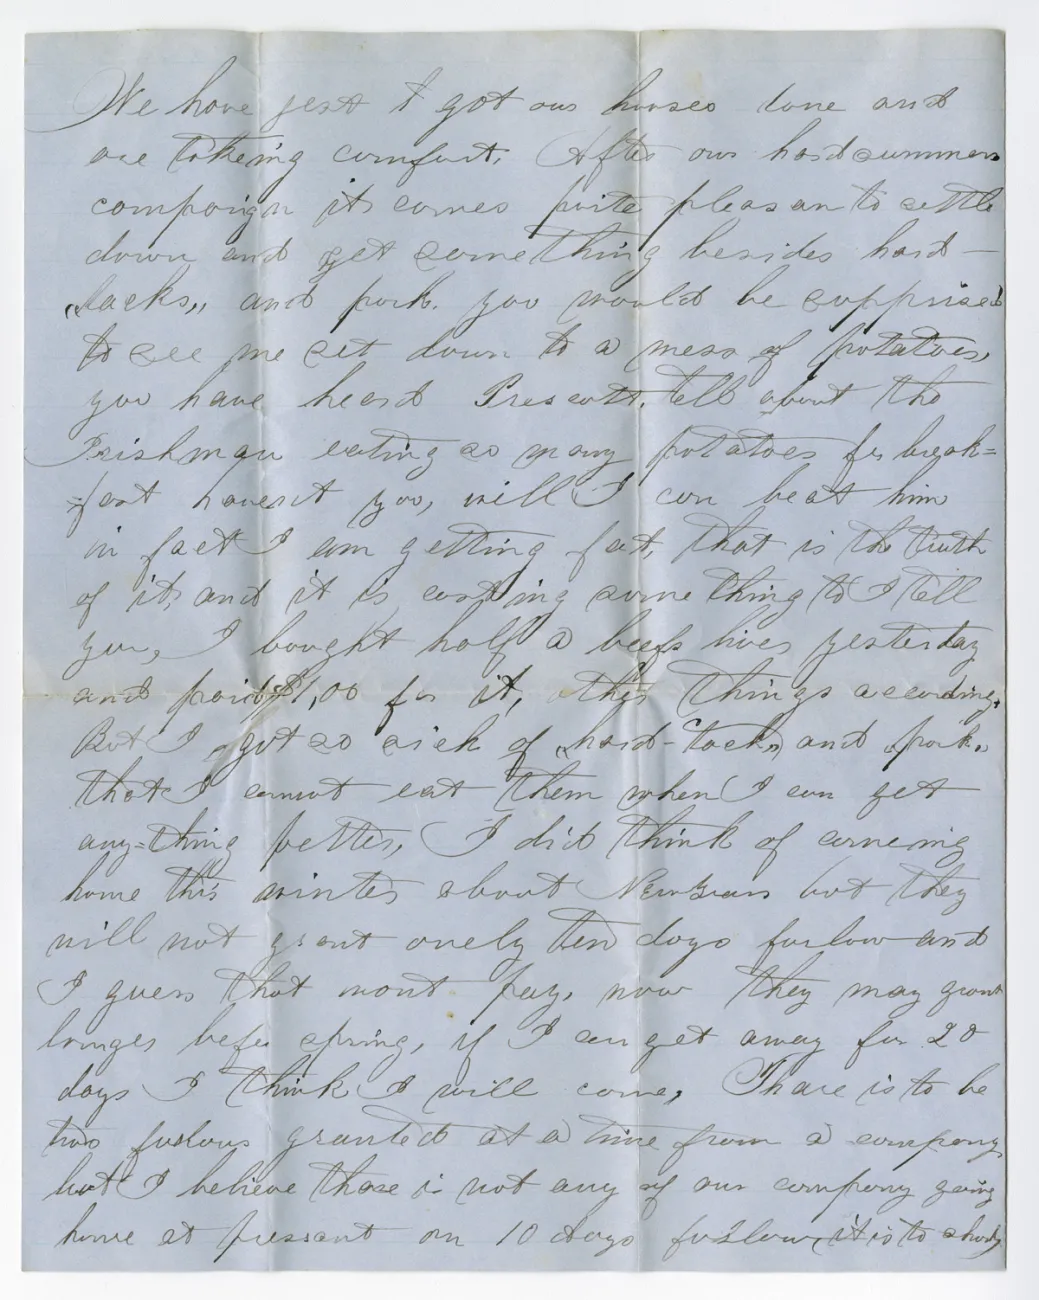 We have jest got our houses done and
are takeing comfort. After our hard summers
compaign it comes quite pleasan to settle
down and get something besides hard-
"tacks," and pork. you would be supprised
to see me set down to a mess of potatoes,
you have heard Prescott, tell about the
Irishman eating so many potatoes for break=
=fast havent you, will I can beat him
in fact I am getting fat, that is the truth
of it, and it is costing something to I tell
you, I bought half a beefs liver yesterday
and paid $1,00 for it, other things according.
But I got so sick of "hard-tack," and "pork,"
that I cannot eat them when I can get
any=thing better, I did think of comeing
home this winter about New Years but they
will not grant onely ten days furlow and
I guess that wont pay, now they may grant
longer before spring, if I can get away for 20
days I think I will come, Thare is to be
two furlows granted at a time from a company
but I believe thare is not any of our company going
home at pressant on 10 days furlow, it is to short